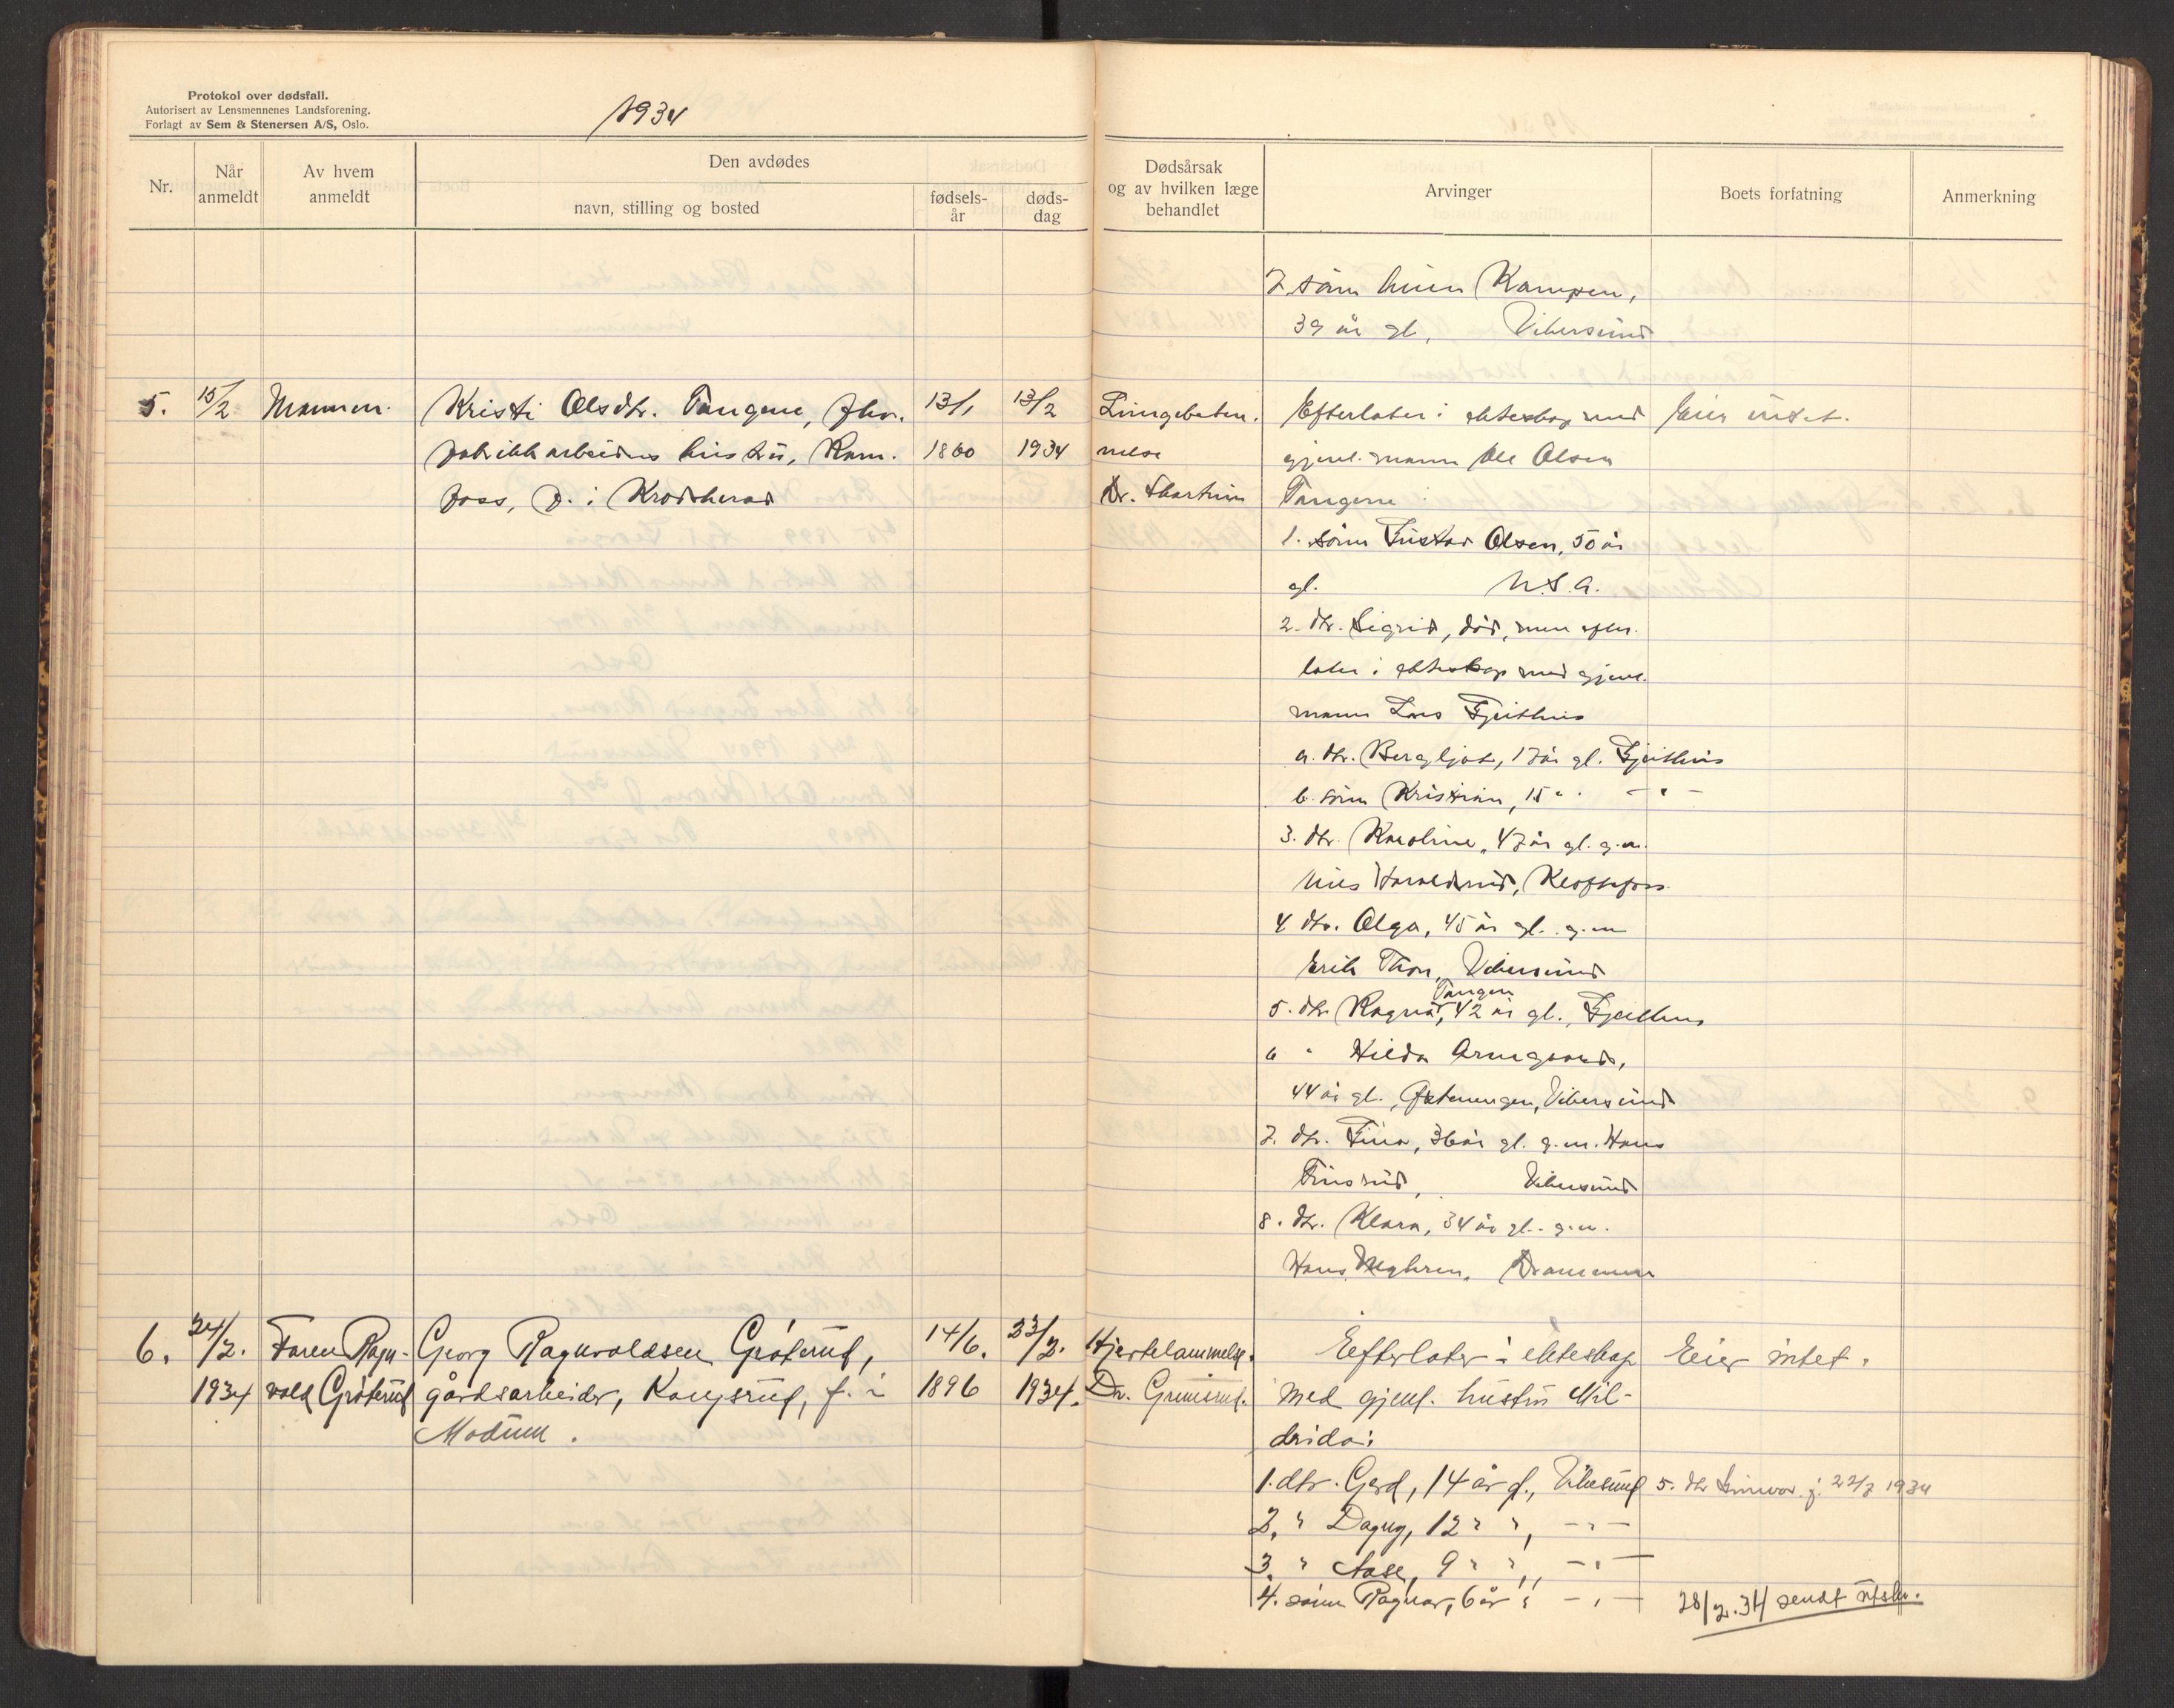 Protokol over dødsfall.
Autorisert av Lensmennenes Landsforening.
Forlagt av Sem & Stenersen A/S, Oslo.
1934
Nr.
Når anmeldt
Av hvem anmeldt
Den avdødes
navn, stilling og bosted
fødsels-år
døds-dag
Dødsårsak og av hvilken læge behandlet
Arvinger
Boets forfatning
Anmerkning
7. sønn Kampen,
39 år gl., Vikersund
5. 15/2 Mannen. Kristi Olsdtr. Tangene, fhv. 13/1 13/2 Lungebeten- Efterlater i ekteskap med Eier intet.
fabrikkarbeiders hustru, Ram- 1860 1934 nelse gjenl. mann Ole Olsen
foss, f. i Krødsherad Dr. Skartum Tangene
1. sønn Gustav Olsen, 50 år
gl. U.S.A.
2. dtr. Sigrid, død, men efter-
later i ekteskap med gjenl.
mann Lars Gjeithus
a. dtr. Bergljot, 17 år gl. Gjeithus
b. sønn Kristian, 15 " " — " —
3. dtr. Karoline, 47 år gl. g.m.
Nils Haraldsrud, Kloftefoss
4 dtr. Olga, 45 år gl. g.m
Erik Thon, Vikersund
Tangen
5. dtr. Ragna, 42 år gl., Gjeithus
6 " Hilda Armgaard,
44 år gl., Vikersund
7. dtr. Tina, 36 år gl. g.m. Hans
Finsrud, Vikersund
8. dtr. Klara, 34 år gl. g.m.
Hans Drammen
6. 24/2. Faren Ragn- Georg Ragnvaldsen Grøterud, 14/6. 23/2. Hjertelammelse. Efterlater i ekteskap Eier intet.
1934 vald Grøterud gårdsarbeider, Kongsrud, f. i 1896 1934. Dr. Grimsrud. med gjenl. hustru Mil-
Modum. drida:
1. dtr. Gerd, 14 år gl., Vikersund 5. dtr. f. 22/3 1934
2. " Dagny, 12 " ", — " —
3. " Aase, 9 " ", — " —
4. sønn Ragnar, 6 år " — " — 28/2.34 sendt utskr.